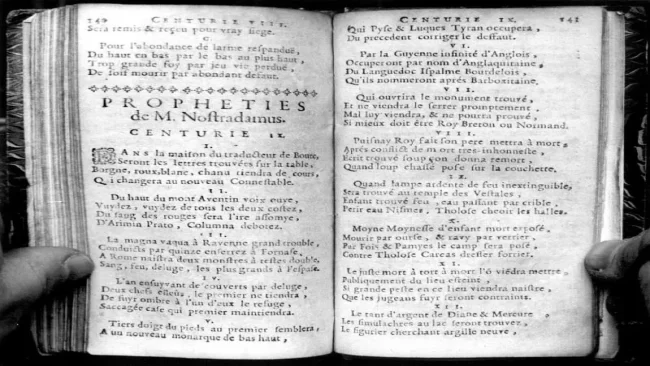 240 CENTURIE VIII.
Sera remis & reçeu pour vray siege.
C.
Pour l'abondance de larme respanduë,
Du haut en bas par le bas au plus haut,
Trop grande foy par jeu vie perduë,
De soif mourir par abondant defaut.
PROPHETIES
de M. Nostradamus.
CENTURIE IX.
I.
DAns la maison du traducteur de Boure,
Seront les lettres trouvées sur la table,
Borgne, roux, blanc, chanu tiendra de cours,
Qui changera au nouveau Connestable.
II.
Du haut du mont Aventin voix ouye,
Vuydez, vuydez de tous les deux costez,
Du sang des rouges sera l'ire assomye,
D'Arimin Prato, Columna debotez.
III.
La magna vaqua à Ravenne grand trouble,
Conduicts par quinze enserrez à Fornase,
A Rome naistra deux monstres à testes double,
Sang, feu, deluge, les plus grands à l'espase.
IV.
L'an ensuyvant de couverts par deluge,
Deux chefs esleus, le premier ne tiendra,
De fuyr ombre à l'un d'eux le refuge,
Saccagée case qui premier maintiendra.
V.
Tiers doigt du pieds au premier semblera,
A un nouveau monarque de bas haut,
CENTURIE IX. 241
Qui Pyse & Luques Tyran occupera,
Du precedent corriger le deffaut.
VI.
Par la Guyenne infinité d'Anglois,
Occuperont par nom d'Anglaquitaine,
Du Languedoc Ispalme Bourdelois,
Qu'ils nommeront après Barboxitaine.
VII.
Qui ouvrira le monument trouvé,
Et ne viendra le serrer promptement,
Mal luy viendra, & ne pourra prouvé,
Si mieux doit être Roy Breton ou Normand.
VIII.
Puisnay Roy fait son pere mettra à mort,
Après conflict de mort tres-inhonneste,
Ecrit trouvé soupçon donna remort,
Quand loup chassé pose sur la couchette.
IX.
Quand lampe ardente de feu inextinguible,
Sera trouvé au temple des Vestales,
Enfant trouvé feu, eau passant par crible,
Perir eau Nismes, Tholose cheoir les halles.
X.
Moyne Moynesse d'enfant mort exposé,
Mourir par ourse, & ravy par verrier,
Par Fois & Pamyes le camp sera posé,
Contre Tholose Carcas dresser forrier.
XI.
Le juste mort à tort à mort l'ô viédra mettre,
Publiquement du lieu esteint,
Si grande peste en ce lieu viendra naistre,
Que les jugeans fuyr seront contraints.
XII.
Le tant d'argent de Diane & Mercure,
Les simulachres au lac seront trouvez,
Le figurier cherchant argille neuve,